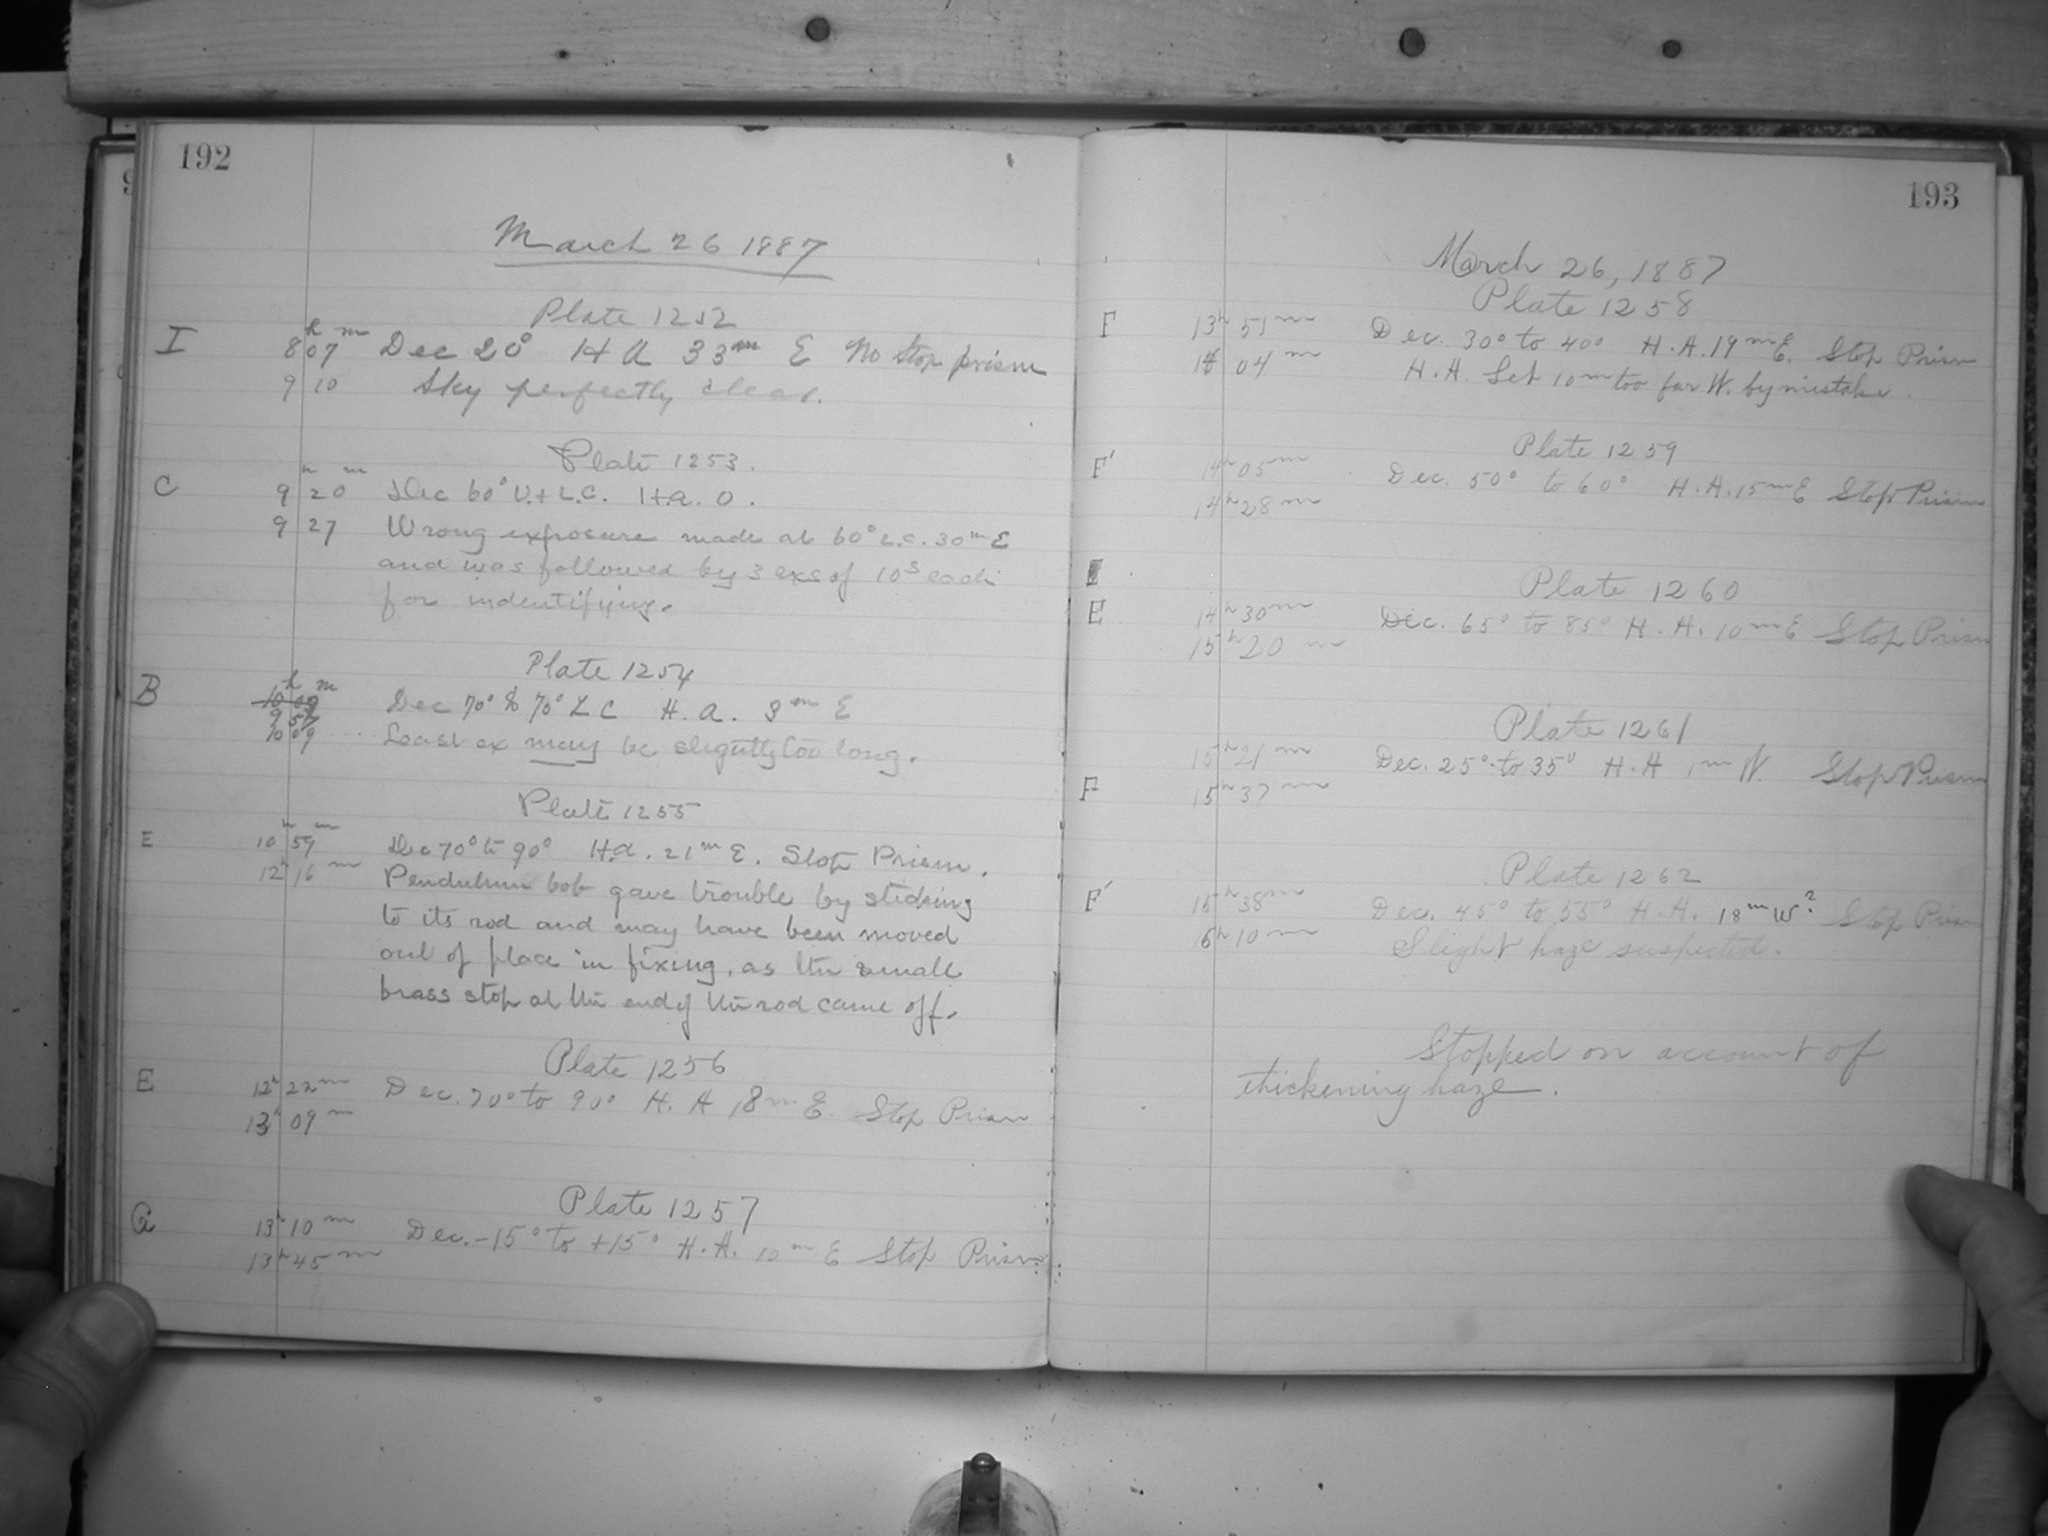 192
March 26 1887
Plate 1252
I 8h 07m Dec 20° H A 33m E No Stop prism
9 10 Sky perfectly clear.
Plate 1253.
C 9h 20m Dec 60° U. + L.C. H.a. 0.
9 27 Wrong exposure made at 60° L.C. 30m E
and was followed by 3 exs of 10s each
for indentifying.
Plate 1254
B 10h 09m Dec 70° & 70° L C H. a. 3m E
9 57
10 09 Least ex may be slightly too long.
Plate 1255
E 10h 59m Dec 70° to 90° H.a. 21m E. Stop Prism.
12h 16m Pendulum bob gave trouble by sticking
to its rod and may have been moved
out of place in fixing, as the small
brass stop at the end of the rod came off.
Plate 1256
E 12h 22m Dec. 70° to 90° H. A 18m E. Stop Prism
13h 09m
Plate 1257
G 13h 10m Dec. -15° to +15° H. A. 10m E Stop Prism
13h 45m
193
March 26, 1887
Plate 1258
F 13h 51m Dec. 30° to 40° H. A. 19m E. Stop Prism
14 04m H. A. Set 10m too far W. by mistake.
Plate 1259
F' 14h 05m Dec. 50° to 60° H. A. 15m E Stop Prism
14h 28m
Plate 1260
E 14h 30m Dec. 65° to 85° H. A. 10m E Stop Prism
15h 20m
Plate 1261
15h 21m Dec. 25° to 35° H. A 1m W. Stop Prism
F 15h 37m
Plate 1262
F' 15h 38m Dec. 45° to 55° H. A. 18m W? Stop Prism
16h 10m Slight haze suspected.
Stopped on account of
thickening haze.